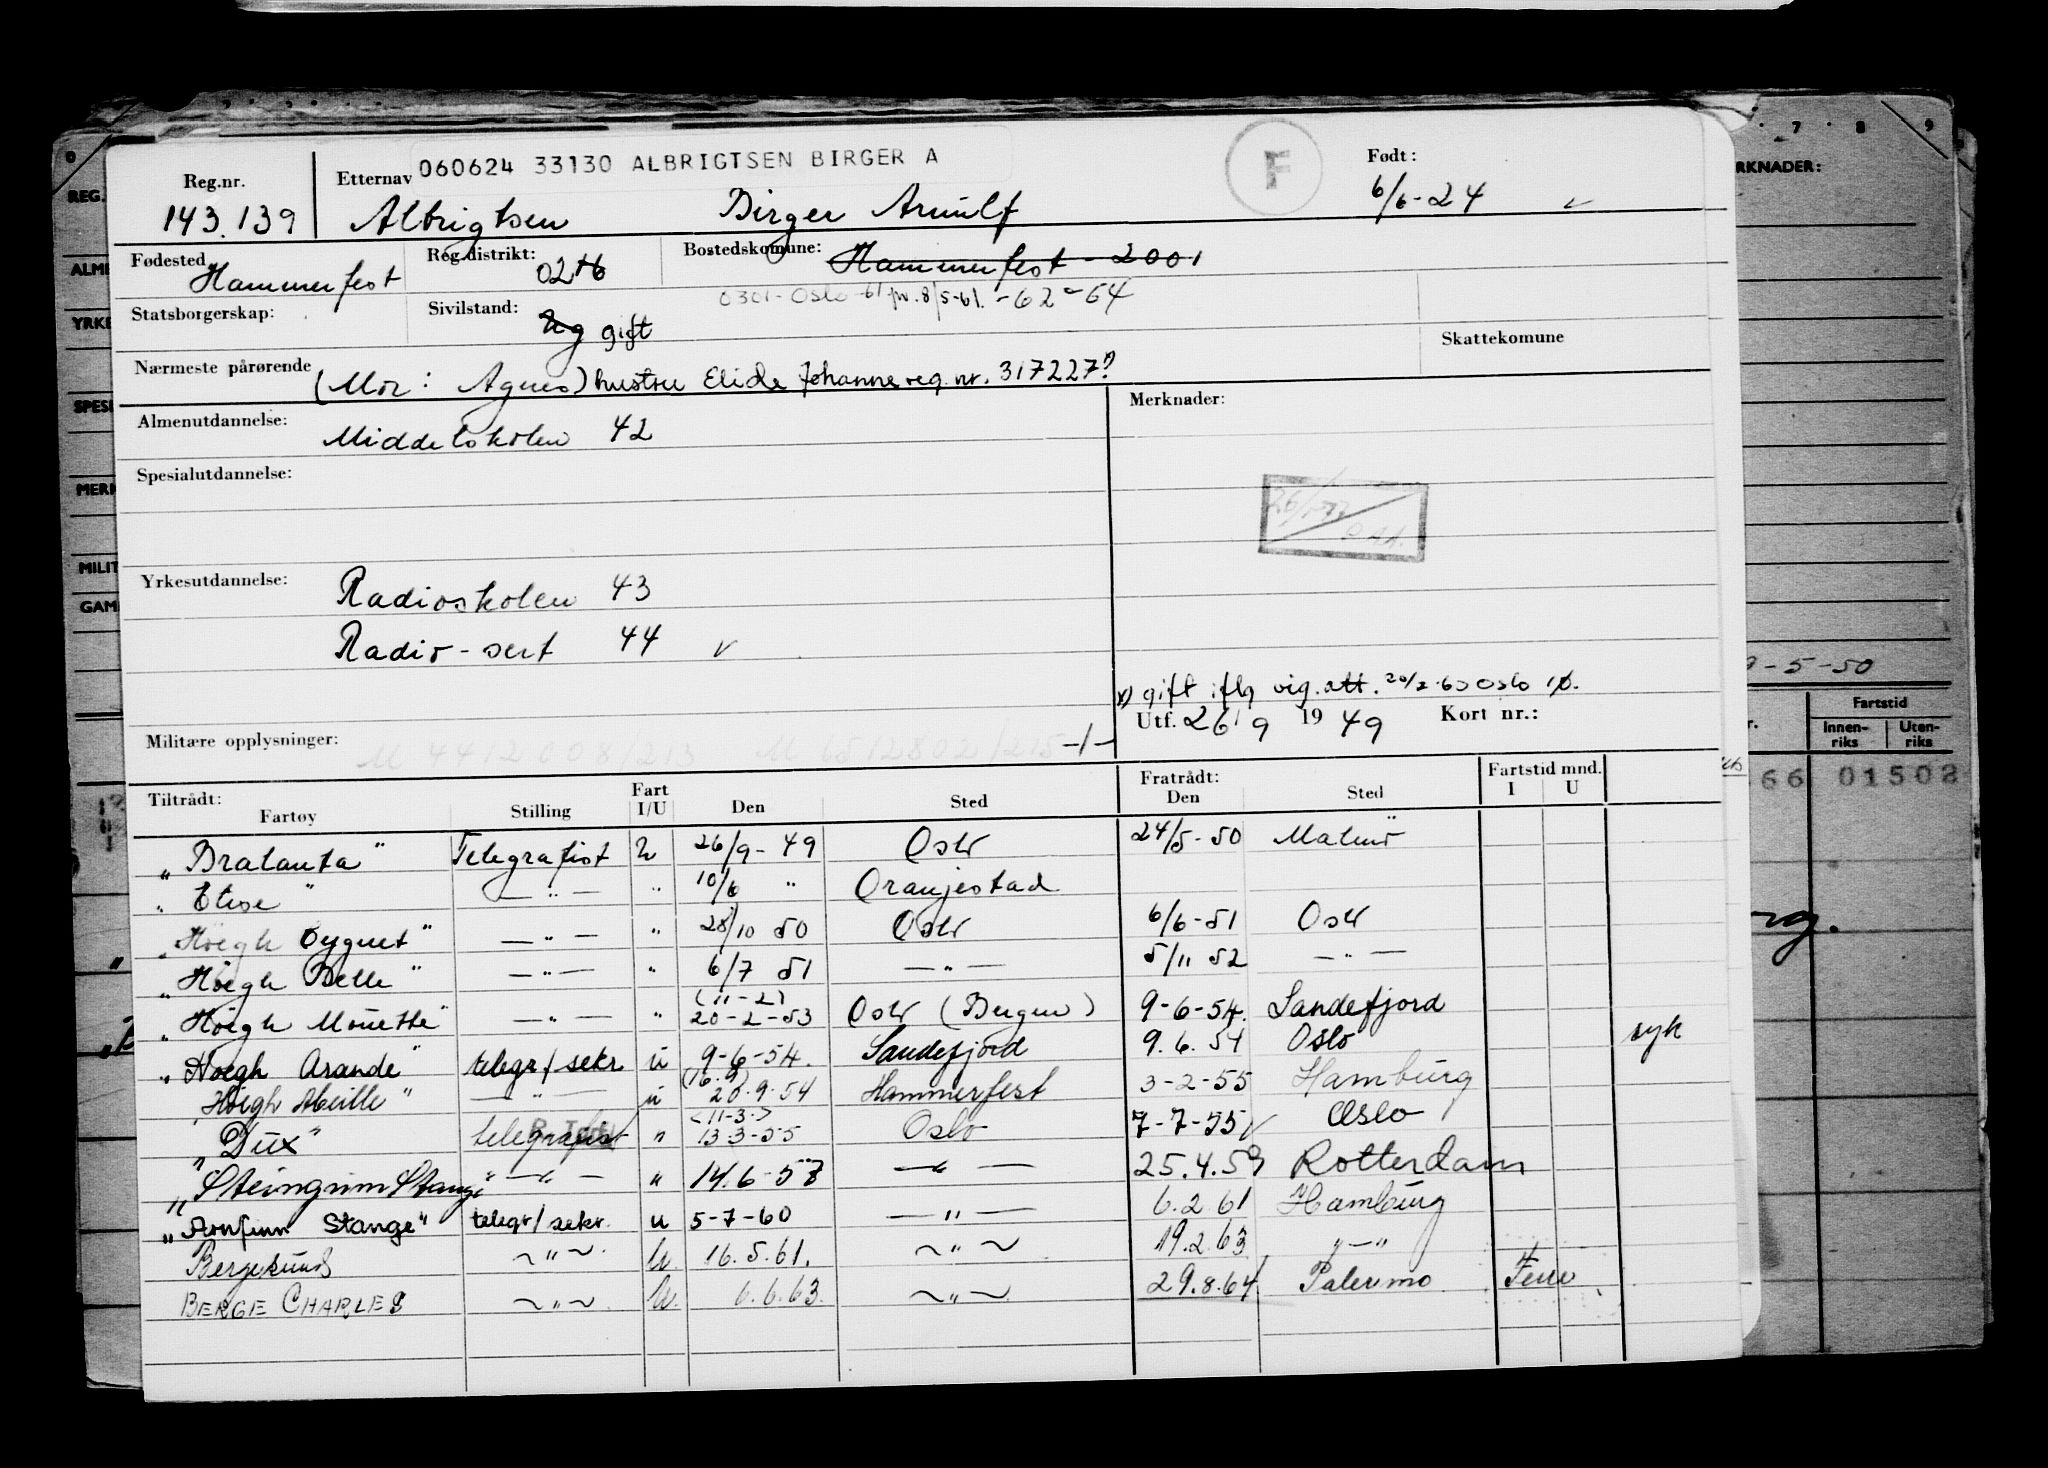 060624 33130 ALBRIGTSEN BIRGER A
F
Reg.nr. Etternavn Født:
143.139 Albrigtsen Birger Arnulf 6/6-24
Fødested Reg.distrikt: Bostedskomune:
Hammerfest Hammerfest - 2001
0301-Oslo -61 pr. 8/5-61. -62-64
Statsborgerskap: Sivilstand:
Ug gift
Skattekomune
Nærmeste pårørende
(Mor: Agnes) hustru Elide Johanne reg.nr. 317227?
Almenutdannelse: Middelskolen 42
Merknader:
Spesialutdannelse:
Yrkesutdannelse: Radioskolen 43
Radio-sert 44
x) gift iflg vig.att. 20/2-63 Oslo
Utf. 26/9 1949 Kort nr.:
Militære opplysninger:
Tiltrådt: Fratrådt: Fartstid mnd.
Fartøy Stilling Fart I/U Den Sted Den Sted I U
"Bralanta" Telegrafist U 26/9-49 Oslo 24/5-50 Malmö
"Elise" — " — " 10/6 " Oranjestad
"Höegh Cygnet" — " — " 28/10 50 Oslo 6/6-51 Oslo
"Höegh Belle" — " — " 6/7 51 — " — 5/11 52 — " —
(11-2)
"Höegh Mouette" — " — " 20-2-53 Oslo (Bergen) 9-6-54. Sandefjord
"Höegh Arande" telegr/sekr u 9-6-54. Sandefjord 9.6.54 Oslo syk
Höegh Abeille" — " — u 20.9.54 Hammerfest 3-2-55 Hamburg
(11-3)
"Dux" telegrafist " 13-3-55 Oslo 7-7-55 Oslo
"Steingrim Stange" — " — " 14.6-57 — " — 25.4.59 Rotterdam
"Arnfinn Stange" telegr/sekr. u 5-7-60 — " — 6.2.61 Hamburg
Bergesund ~ " ~ U. 16.5.61. ~ " ~ 19.2.63 " — "
BERGE CHARLES ~ " ~ U. 6.6.63. ~ " ~ 29.8.64 Palermo Ferie
7 8 9
RKNADER:
9-5-50
Fartstid
Innen-riks Uten-riks
66 01502
rg.
0
REG.
ALME
YRKE
SPESI
MERK
MILIT
GAM